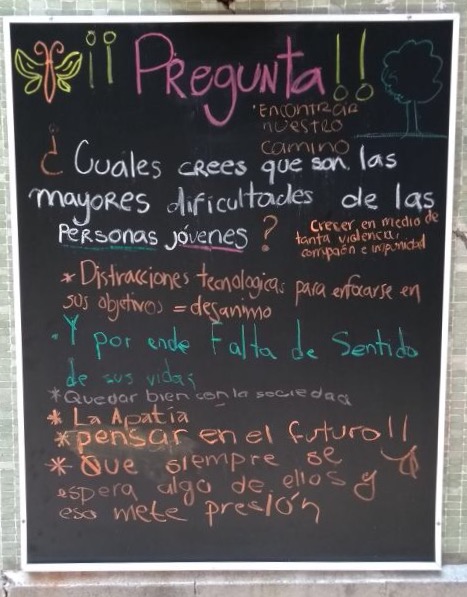 ¡¡ Pregunta!!
*Encontrar
nuestro
camino
¿Cuales crees que son las
mayores dificultades de las
personas jóvenes?
Crecer en medio de
tanta violencia,
corrupción e impunidad
* Distracciones tecnologicas para enfocarse en
sus objetivos = desanimo
. Y por ende Falta de Sentido
de sus vidas
*Quedar bien con la sociedad
* La Apatía
*pensar en el futuro!!
* Que siempre se
espera algo de ellos y
eso mete presión